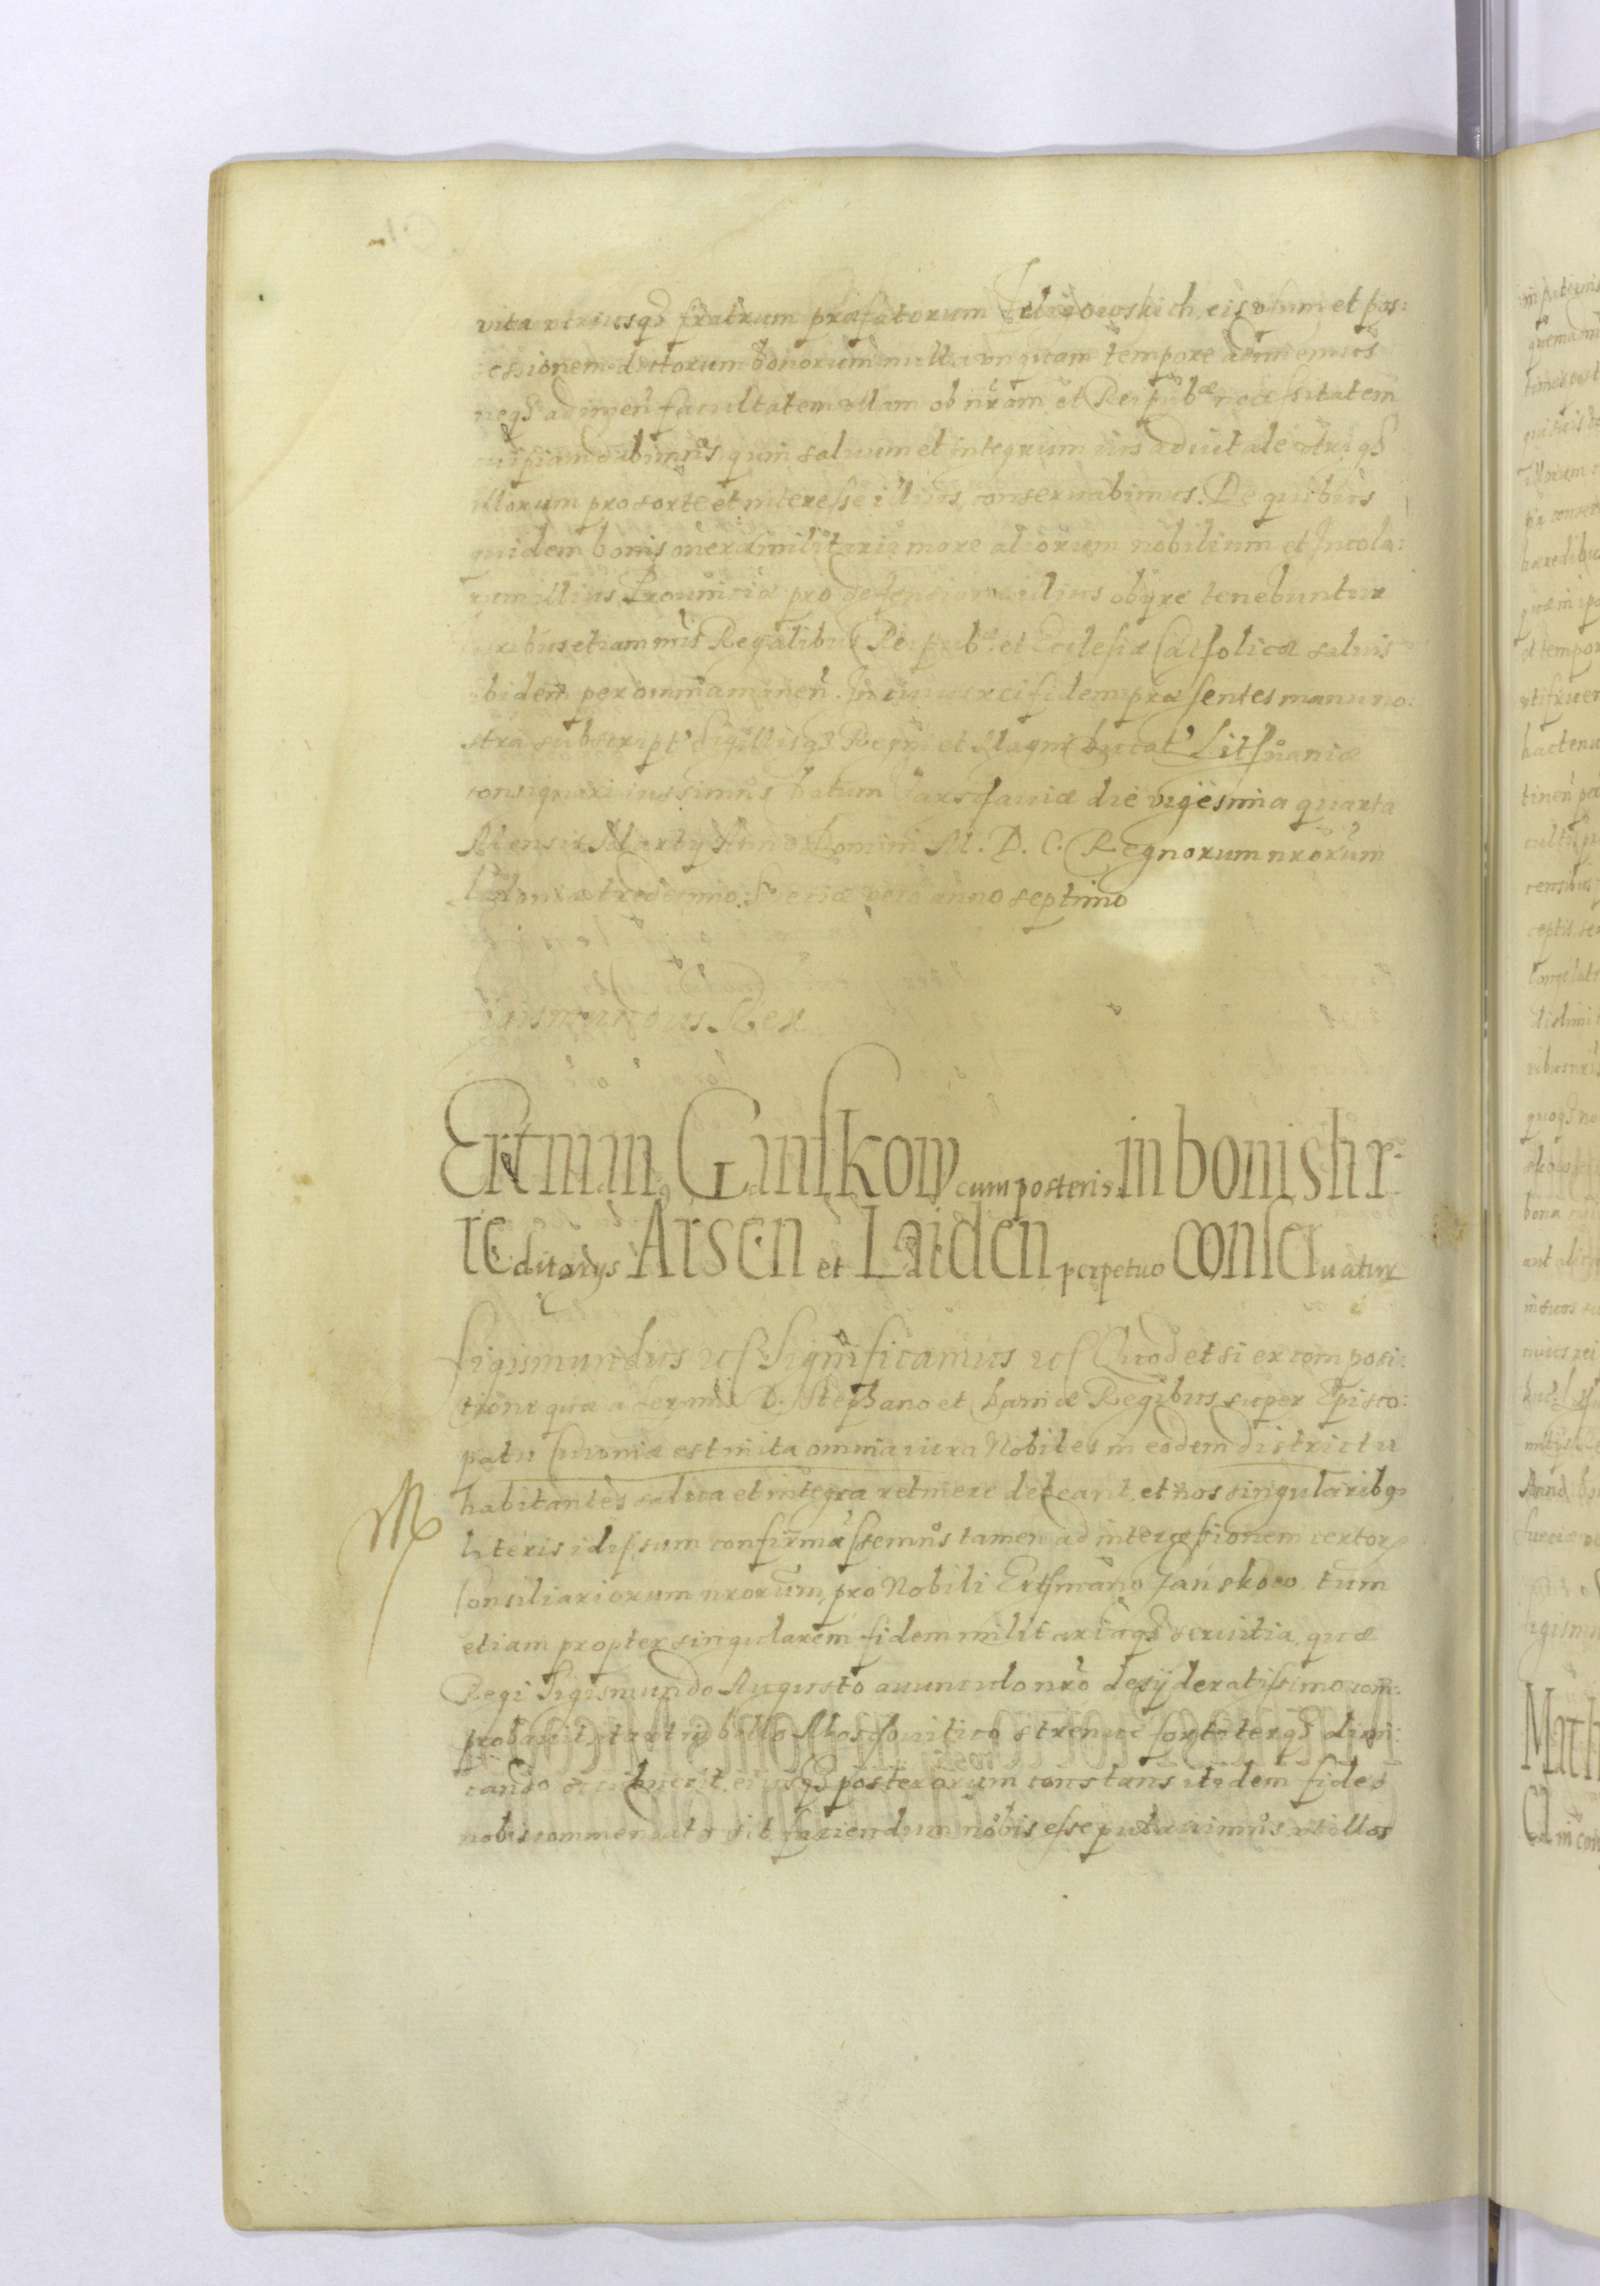 vita utriusq3 fratrum praefatorum eis usum et pos:
sessionem dictorum bonorum nullo unquam tempore adimemus
neq3 adimen facultatem ullam ob nram et Reipub^ae necessitatem
cuipiam dabimus, quin salvum et integrum ius advitale utriq3
illorum pro sorte et interesse illius conservabimus. De quibus
quidem bonis onera militaria more aliorum nobilium et Incola:
rum illius Provinciae pro defensione illius obijre tenebuntur
Iuribus etiam nris Regalibus Reipub. et Ecclesiae Catholicae salvis
ibidem per omnia manen. In cuius rei fidem praesentes manu no:
stra subscript' sigillisq3 Regni et Magni Ducat' Lithuaniae
consignari iussimus Datum Varschaviae die vigesima quarta
Mensis Martij Anno Domini M. D. C. Regnorum nrorum
Poloniae tredecimo, Sueciae vero anno septimo
Sigismundus Rex
Ertman Ganskow cum posteris in bonis hę:
reditarijs Arsen et Laiden perpetuo conservatur
Sigismundus etc Significamus etc Quod etsi ex composi:
tione quae a Sermis D. Stephano et Daniae Regibus super Episco:
patu Curoniae est inita omnia iura Nobiles in eodem districtu
habitantes salva et integra retinere debeant, et nos singularibq
literis id ipsum confirmassemus tamen ad intercessionem certor
Consiliariorum nrorum, pro Nobili Erthmano Janskowo tum
etiam propter singularem fidem militariaq3 servitia, quae
Regi Sigismundo Augusto avunculo nro desyderatissimo com:
probavit, utaut in bello Moschovitico strenue fortiterq3 dimi:
cando occubuerit eiusq3 posterorum constans itidem fides
nobis commendata sit faciendum nobis esse putavimus, ut illos